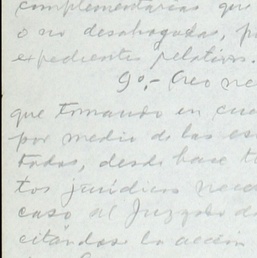 complementarias que
o no desahogadas, p
expedientes relativos.
9o,- Creo nec
que tomando en cue
por medio de las es
tadas, desde hace t
tos jurídicos nece
caso al Juzgado de
citándose la acción